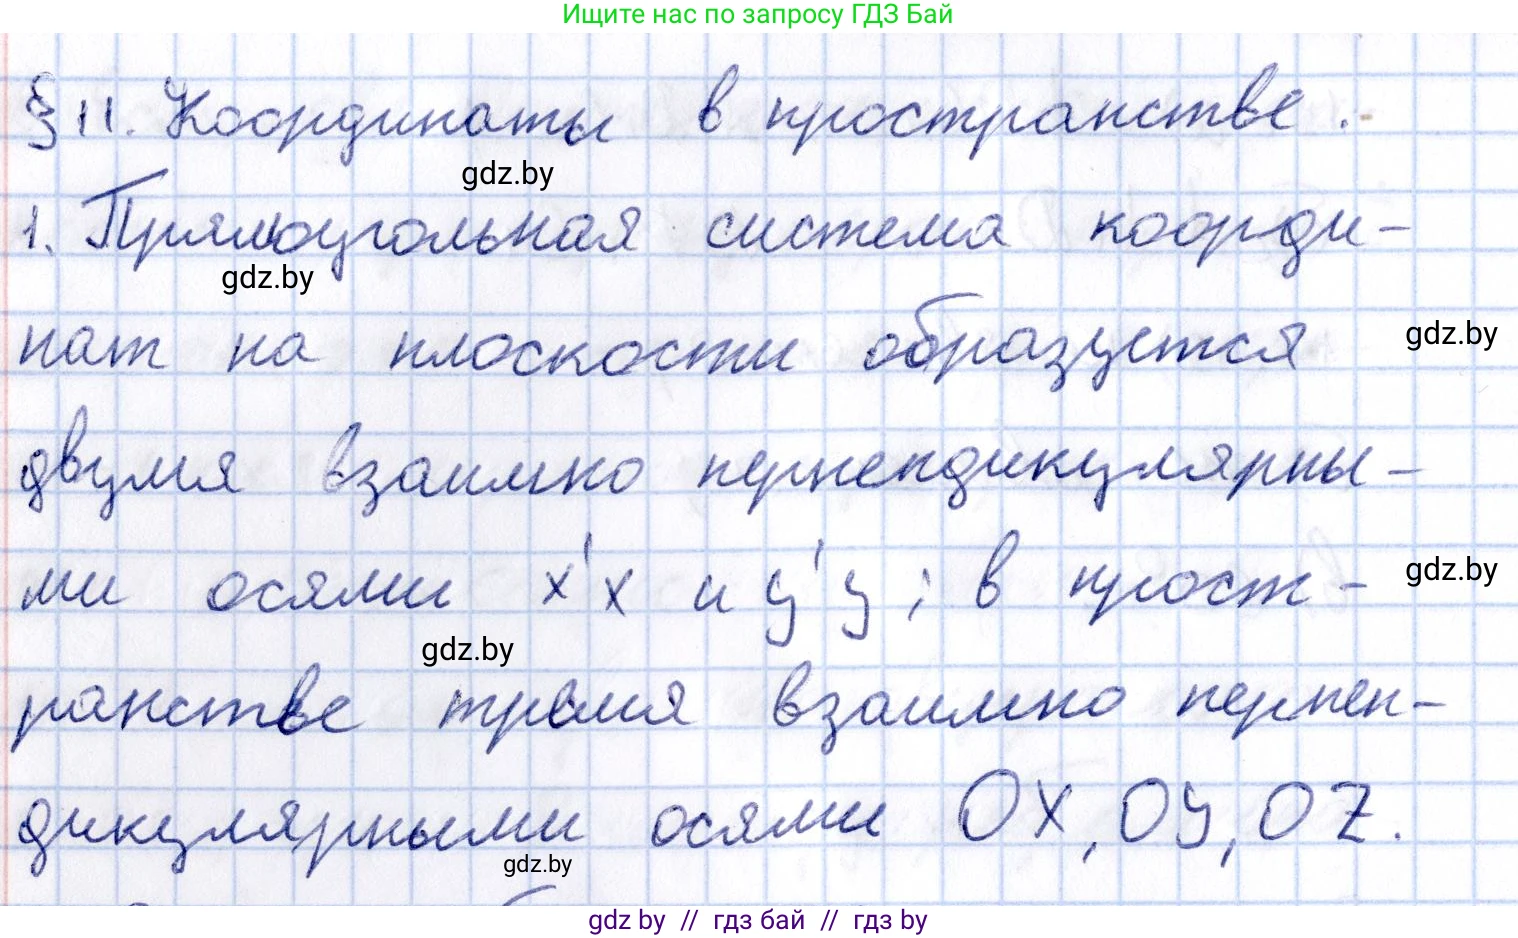 Ищите нас по запросу ГДЗ Бай
§ 11. Координаты в пространстве.
gdz.by
1. Прямоугольная система коорди-
gdz.by
нат на плоскости образуется
gdz.by
двумя взаимно перпендикулярны-
ми осями x'x и y'y; в прост-
gdz.by
gdz.by
ранстве тремя взаимно перпен-
дикулярными осями OX, OY, OZ.
gdz.by
gdz by // гдз бай // гдз by